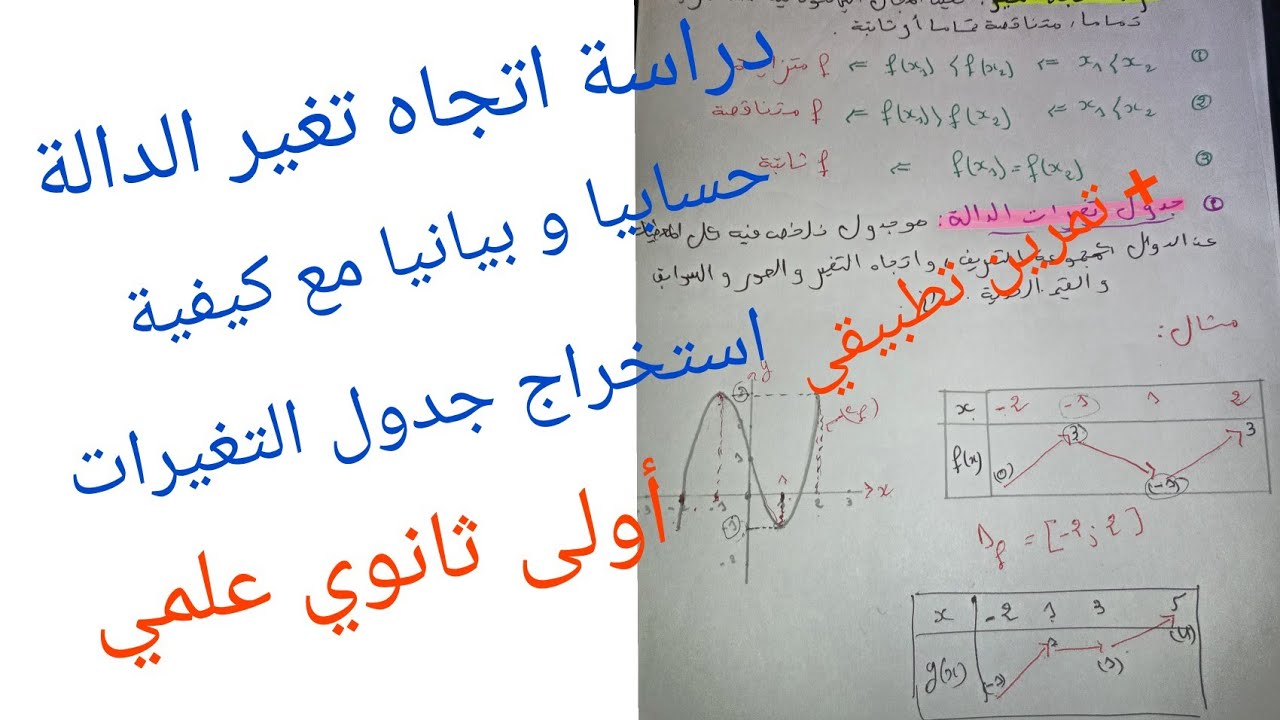 دراسة اتجاه تغير الدالة
حسابيا و بيانيا مع كيفية
استخراج جدول التغيرات
أولى ثانوي علمي
+ تمرين تطبيقي
تماما، متناقصة تماما أو ثابتة.
① x₁⟨x₂ ⇐ f(x₁)⟨f(x₂) ⇐ f
② x₁⟨x₂ ⇐ f(x₁)⟩f(x₂) ⇐ f متناقصة
③ f(x₁)=f(x₂) ⇐ f ثابتة
جدول تغيرات الدالة: هو جدول نلخص فيه كل
عن الدوال و اتجاه التغير و الصور و السوابق
و القيم
مثال:
y
x
x -2 -1 1 2
f(x) (0) (3) (-1) 3
D_f = [-2; 2]
x -2 1 3 5
g(x) (-1) (1) (4)